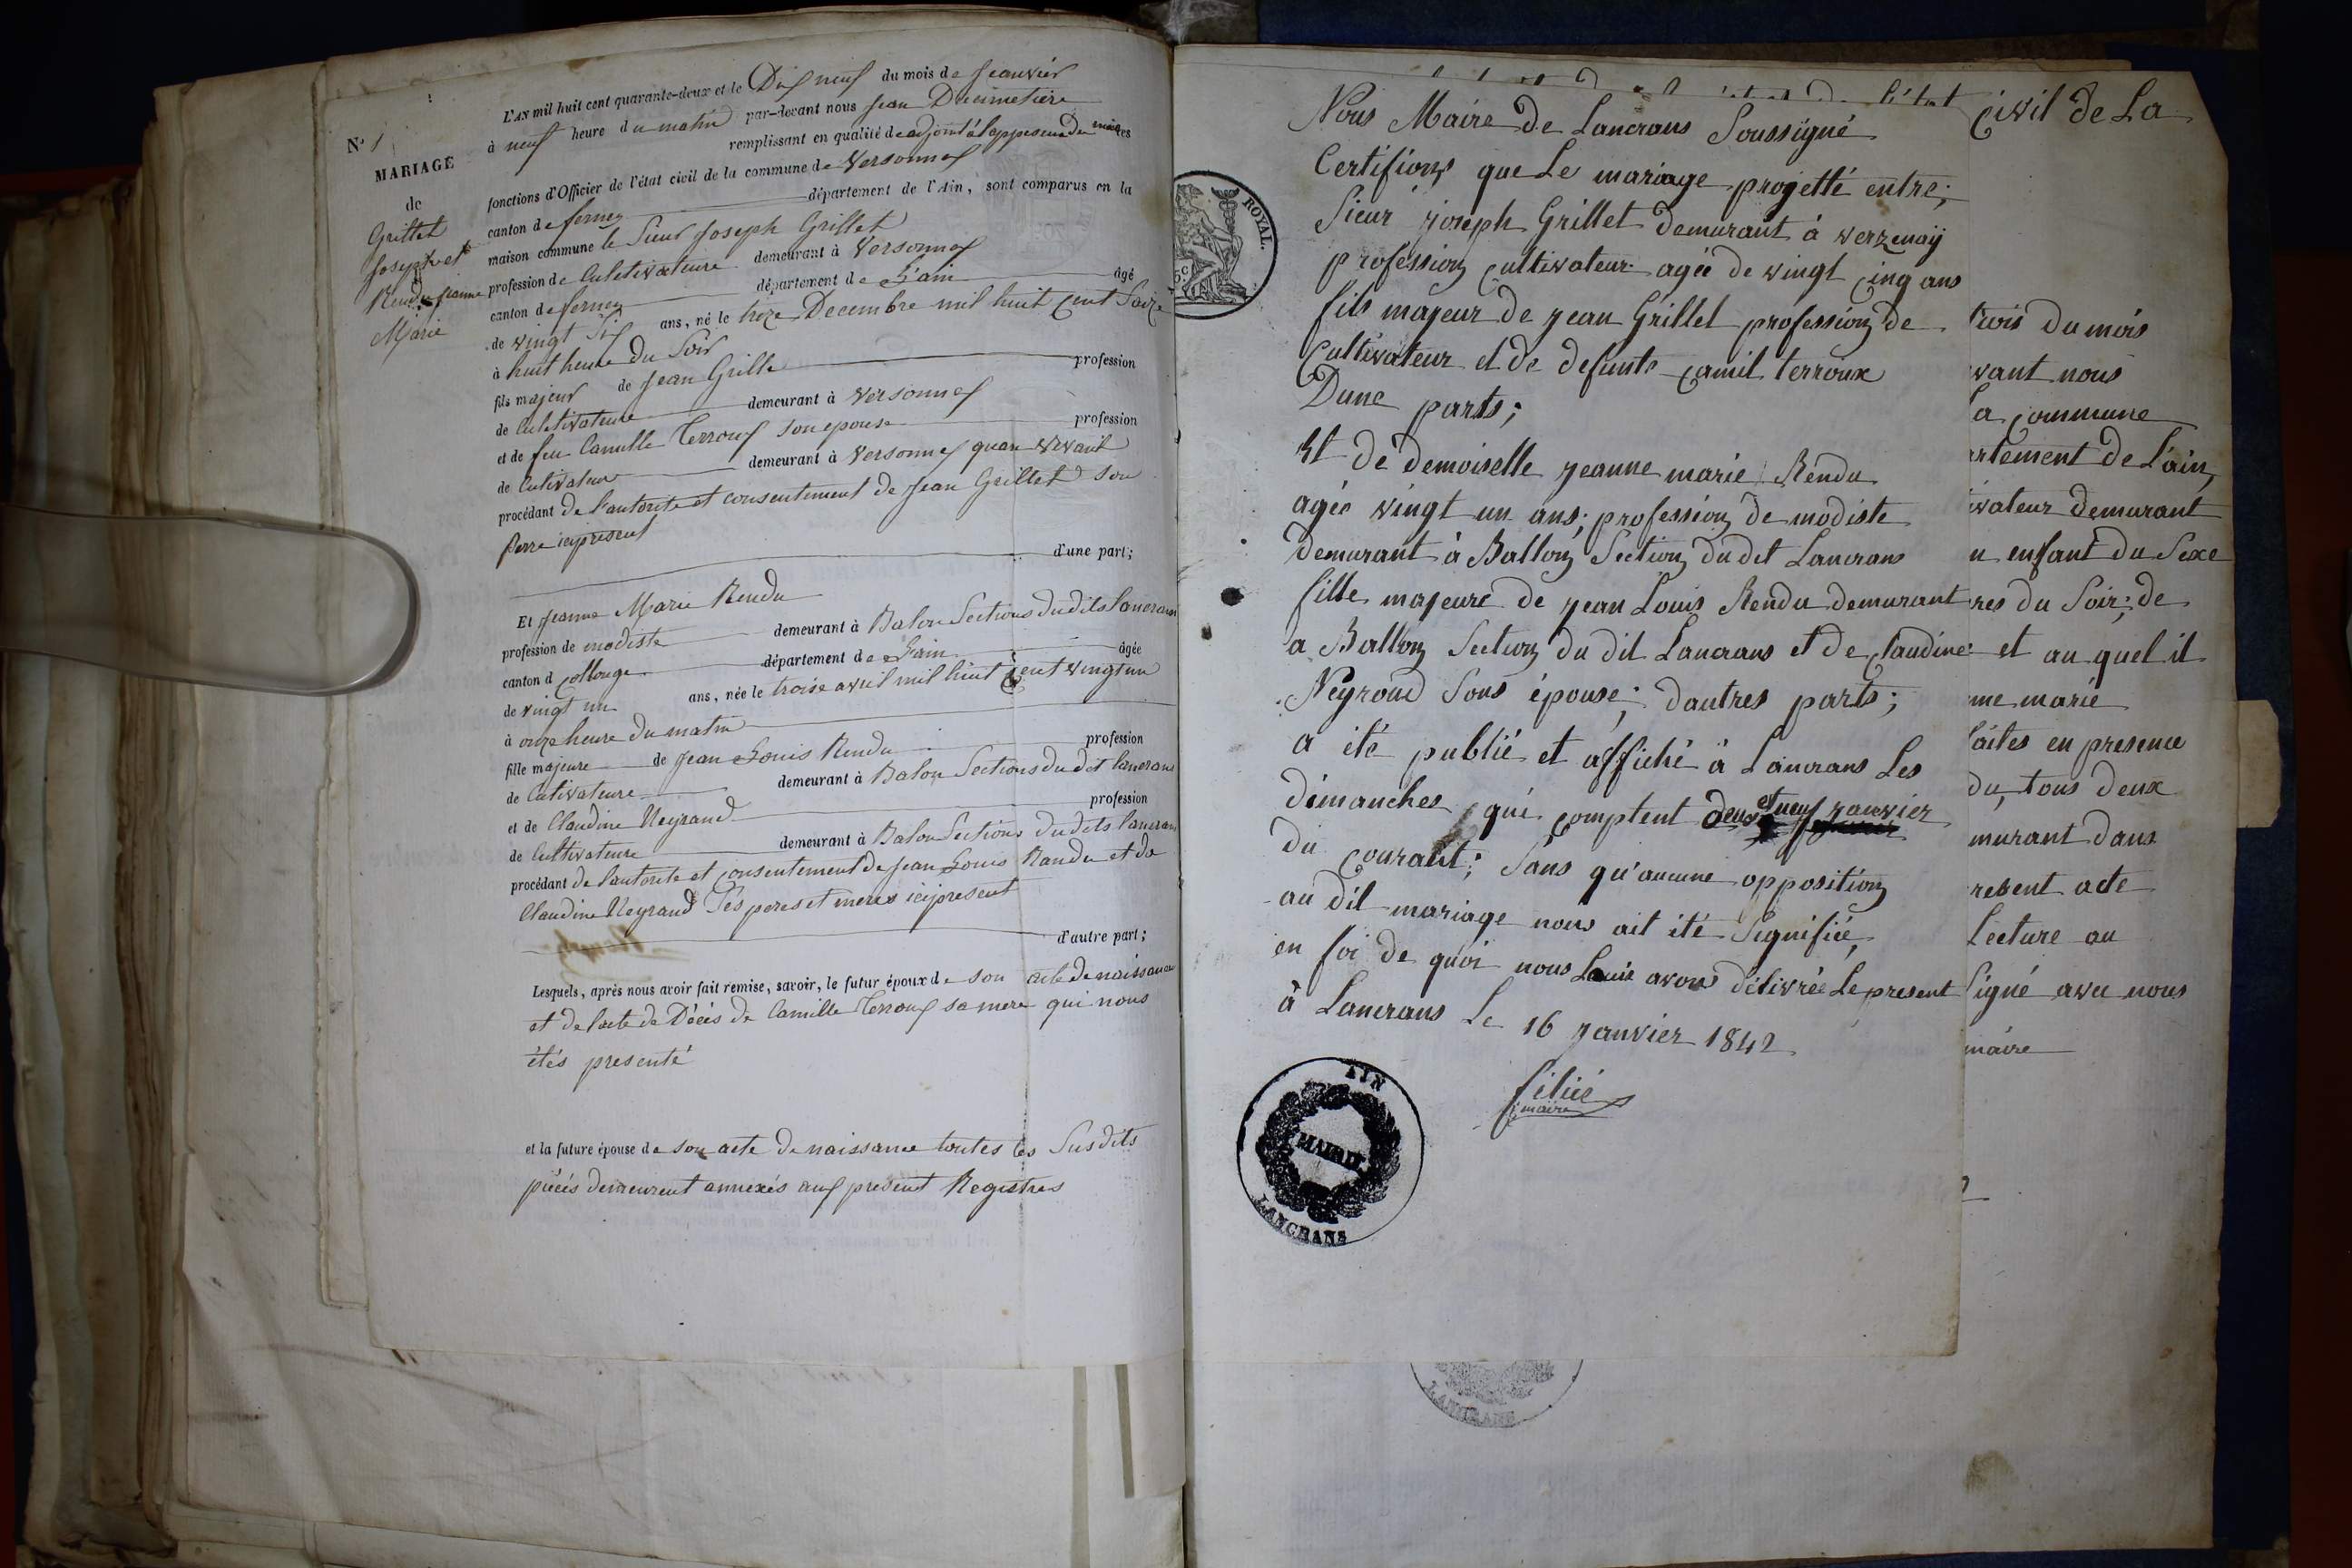 N° 1
MARIAGE
de
Grillet
Joseph et
Rendu Jeanne
Marie
L'AN mil huit cent quarante-deux et le Dix neuf du mois de Jeanvier
à neuf heure du matin par-devant nous Jean Ducimetière
remplissant en qualité de adjoint les
fonctions d'Officier de l'état civil de la commune de Versonnex
canton de ferney département de l'Ain, sont comparus en la
maison commune le Sieur Joseph Grillet
profession de Culetivateure demeurant à Versonnex
canton de ferney département de L'ain âgé
de vingt Six ans, né le treze Decembre mil huit cent Saize
à huit heure du Soir
fils majeur de Jean Grille profession
de Culetivateure demeurant à Versonnex
et de feu Camille Terroux son epouse profession
de Cutivateur demeurant à Versonnex quan vivait
procédant de l'autorite et consentement de Jean Grillet son
perre ici present
d'une part;
Et Jeanne Marie Rendu
profession de modiste demeurant à Balon Sections dudits lancrans
canton d Collonge département de L'ain âgée
de vingt un ans, née le troise avril mil huit cent vingt un
à onze heure du matin
fille majeure de Jean Louis Rendu profession
de Cutivateure demeurant à Balon Sections du dit lancrans
et de Claudine Neyraud profession
de Cultivateure demeurant à Balon Sections du dits lancrans
procédant de l'autorite et consentement de Jean Louis Randu et de
Claudine Neyraud Ses peres et meres ici present
d'autre part;
Lesquels, après nous avoir fait remise, savoir, le futur époux de son acte de naissance
et de l'acte de Décés de Camille Terroux sa mere qui nous
étés presenté
et la future épouse de son acte de naissance toutes les Susdits
piécés demeurent annexés aux present Registres
ROYAL.
Nous Maire de Lancrans Soussigné
Certifions que Le mariage projetté entre;
Sieur joseph Grillet demurant à verzenaÿ
profession cultivateur agée de vingt cinq ans
fils majeur de jean Grillet profession de
Cultivateur et de defunte camil terroux
Dune parts;
Et de demoiselle jeanne marie Rendu
agée vingt un ans; profession de modiste
demurant à Ballon Section du dit Lancrans
fille majeure de jean Louis Rendu demurant
a Ballon Section du dit Lancrans et de claudine
Neyroud Sons épouse; dautres parts;
a été publié et affiché à Lancrans Les
dimanches qui comptent deux et neuf janvier
du courant; Sans qu'aucune opposition
au dit mariage nous ait été Signifiée,
en foi de quoi nous avons délivrée Le present
à Lancrans Le 16 janvier 1842
maire
AIN
MAIRIE
LANCRANS
Civil de La
trois du mois
vant nous
La commune
artement de L'ain,
ivateur demurant
n enfant du Sexe
res du Soir; de
et au quel il
me marie
faites en presence
du, tous deux
murant dans
resent acte
Lecture au
Signé avec nous
maire
LANCRANS